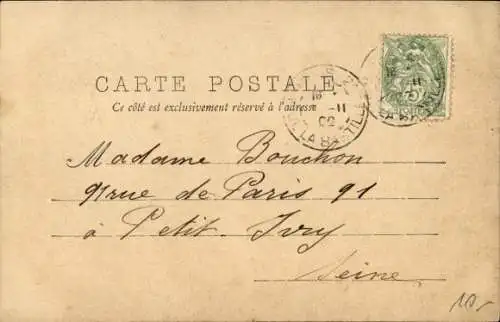 CARTE POSTALE
Ce côté est exclusivement réservé à l'adresse
LA BASTILLE
11
02
LA BAS
Madame Bouchon
91 rue de Paris 91
à Petit-Ivry
Seine
10.-